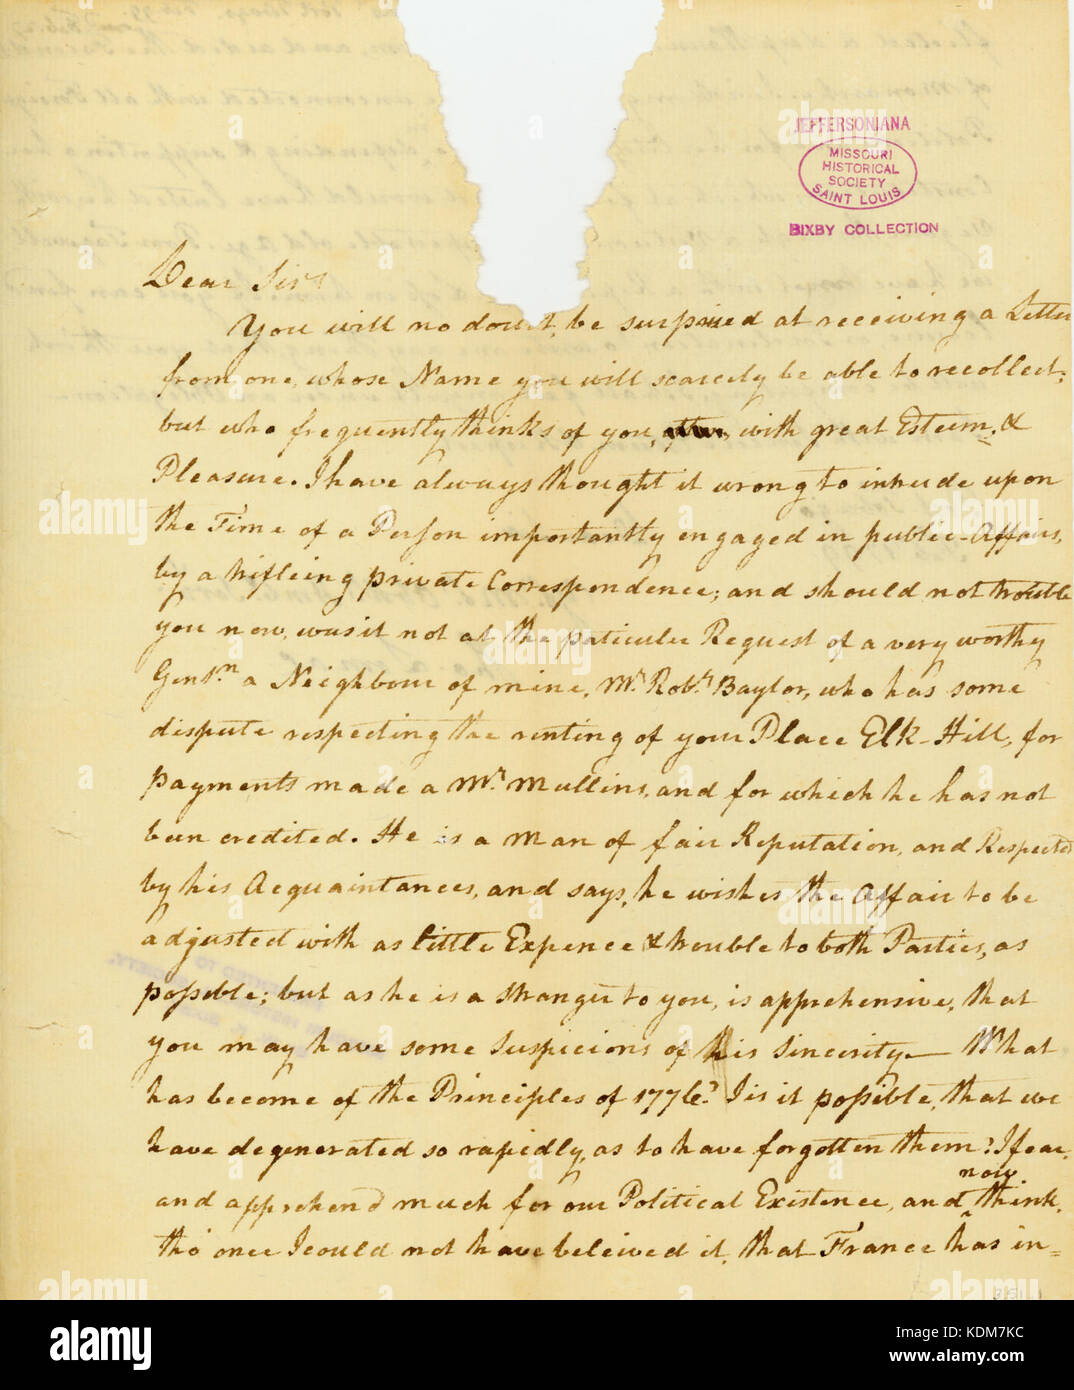 JEFFERSONIANA
MISSOURI
HISTORICAL
SOCIETY
SAINT LOUIS
BIXBY COLLECTION
Dear Sir
You will no doubt, be surprised at receiving a Letter
from one, whose Name you will scarcely be able to recollect;
but who frequently thinks of you, with great Esteem, &
Pleasure. I have always thought it wrong to intrude upon
the Time of a Person importantly engaged in public-Affairs,
by a trifleing private Correspondence; and should not trouble
you now, was it not at the paticular Request of a very worthy
Gent.n a Neighbour of mine, Mr. Robt. Baylor, who has some
dispute respecting the renting of your Place Elk-Hill, for
payments made a Mr. Mullins, and for which he has not
been credited. He is a Man of fair Reputation, and Respected
by his Acquaintances, and says, he wishes the Affair to be
adjusted with as little Expence & trouble to both Parties, as
possible; but as he is a Stranger to you, is apprehensive, that
you may have some Suspicions of his Sincerity— What
has become of the Principles of 1776? Is it possible, that we
have degenerated so rapidly, as to have forgotten them? I fear,
and apprehend much for our Political Existence, and now think,
tho' once I could not have beleived it, that France has in=
alamy
Image ID: KDM7KC
www.alamy.com